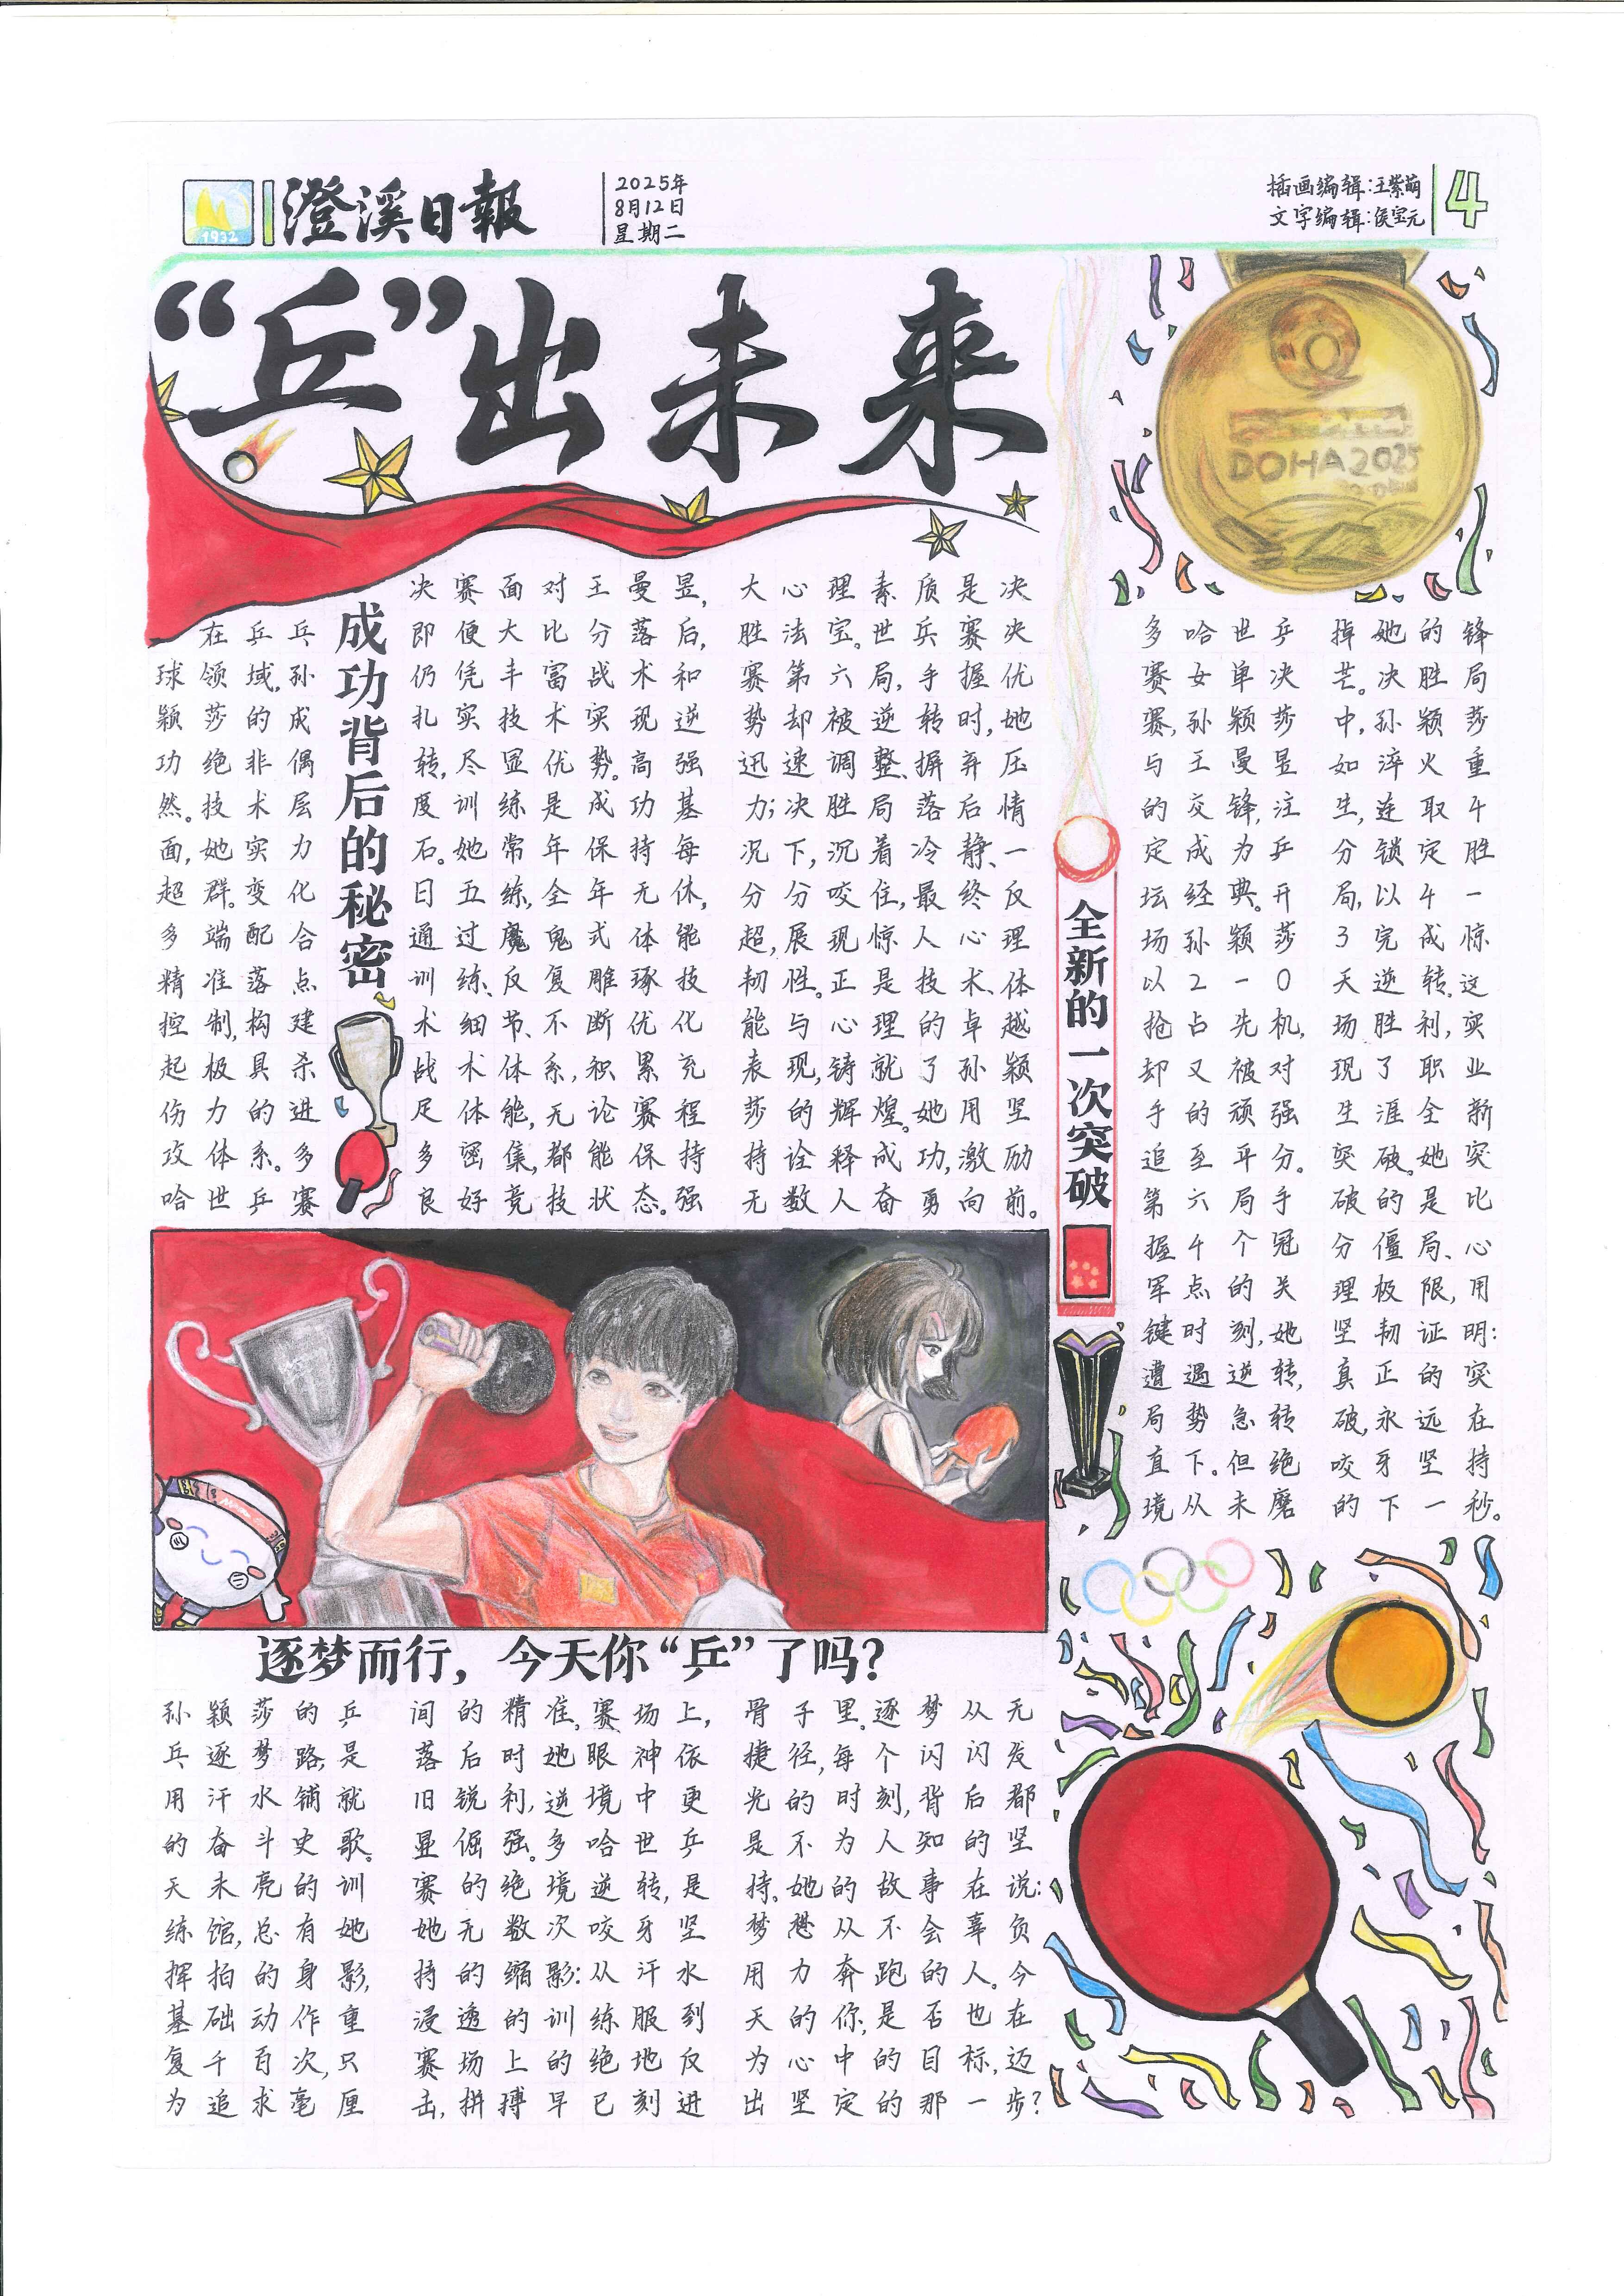 1932
澄溪日報
2025年
8月12日
星期二
插画编辑:王紫萌
文字编辑:侯宝元
4
“乒”出未来
成功背后的秘密
在乒乓
球领域,孙
颖莎的成
功绝非偶
然。技术层
面,她实力
超群。变化
多端配合
精准落点
控制,构建
起极具杀
伤力的进
攻体系。多
哈世乒赛
决赛面对王曼昱,
即便大比分落后,
仍凭丰富战术和
扎实技术实现逆
转,尽显优势。高强
度训练是成功基
石。她常年保持每
日五练,全年无休,
通过魔鬼式体能
训练、反复雕琢技
术细节、不断优化
战术体系,积累充
足体能,无论赛程
多密集,都能保持
良好竞技状态。强
大心理素质是决
胜法宝。世乒赛决
赛第六局,手握优
势却被逆转时,她
迅速调整、摒弃压
力;决胜局落后情
况下,沉着冷静、一
分分咬住,最终反
超,展现惊人心理
韧性。正是技术、体
能与心理的卓越
表现,铸就了孙颖
莎的辉煌。她用坚
持诠释成功,激励
无数人奋勇向前。
DOHA2025
全新的一次突破
多哈世乒
赛女单决
赛,孙颖莎
与王曼昱
的交锋,注
定成为乒
坛经典。开
场孙颖莎
以2-0
抢占先机,
却又被对
手的顽强
追至平分。
第六局手
握4个冠
军点的关
键时刻,她
遭遇逆转,
局势急转
直下。但绝
境从未磨
掉她的锋
芒。决胜局
中,孙颖莎
如淬火重
生,连取4
分锁定胜
局,以4-
3完成惊
天逆转。这
场胜利,实
现了职业
生涯全新
突破。她突
破的是比
分僵局、心
理极限,用
坚韧证明:
真正的突
破,永远在
咬牙坚持
的下一秒。
逐梦而行，今天你“乒”了吗?
孙颖莎的乒
乓逐梦路,是
用汗水铺就
的奋斗史歌。
天未亮的训
练馆,总有她
挥拍的身影,
基础动作重
复千百次,只
为追求毫厘
间的精准。赛场上,
落后时她眼神依
旧锐利,逆境中更
显倔强。多哈世乒
赛的绝境逆转,是
她无数次咬牙坚
持的缩影:从汗水
浸透的训练服到
赛场上的绝地反
击,拼搏早已刻进
骨子里。逐梦从无
捷径,每个闪闪发
光的时刻,背后都
是不为人知的坚
持。她的故事在说:
梦想从不会辜负
用力奔跑的人。今
天的你,是否也在
为心中的目标,迈
出坚定的那一步?